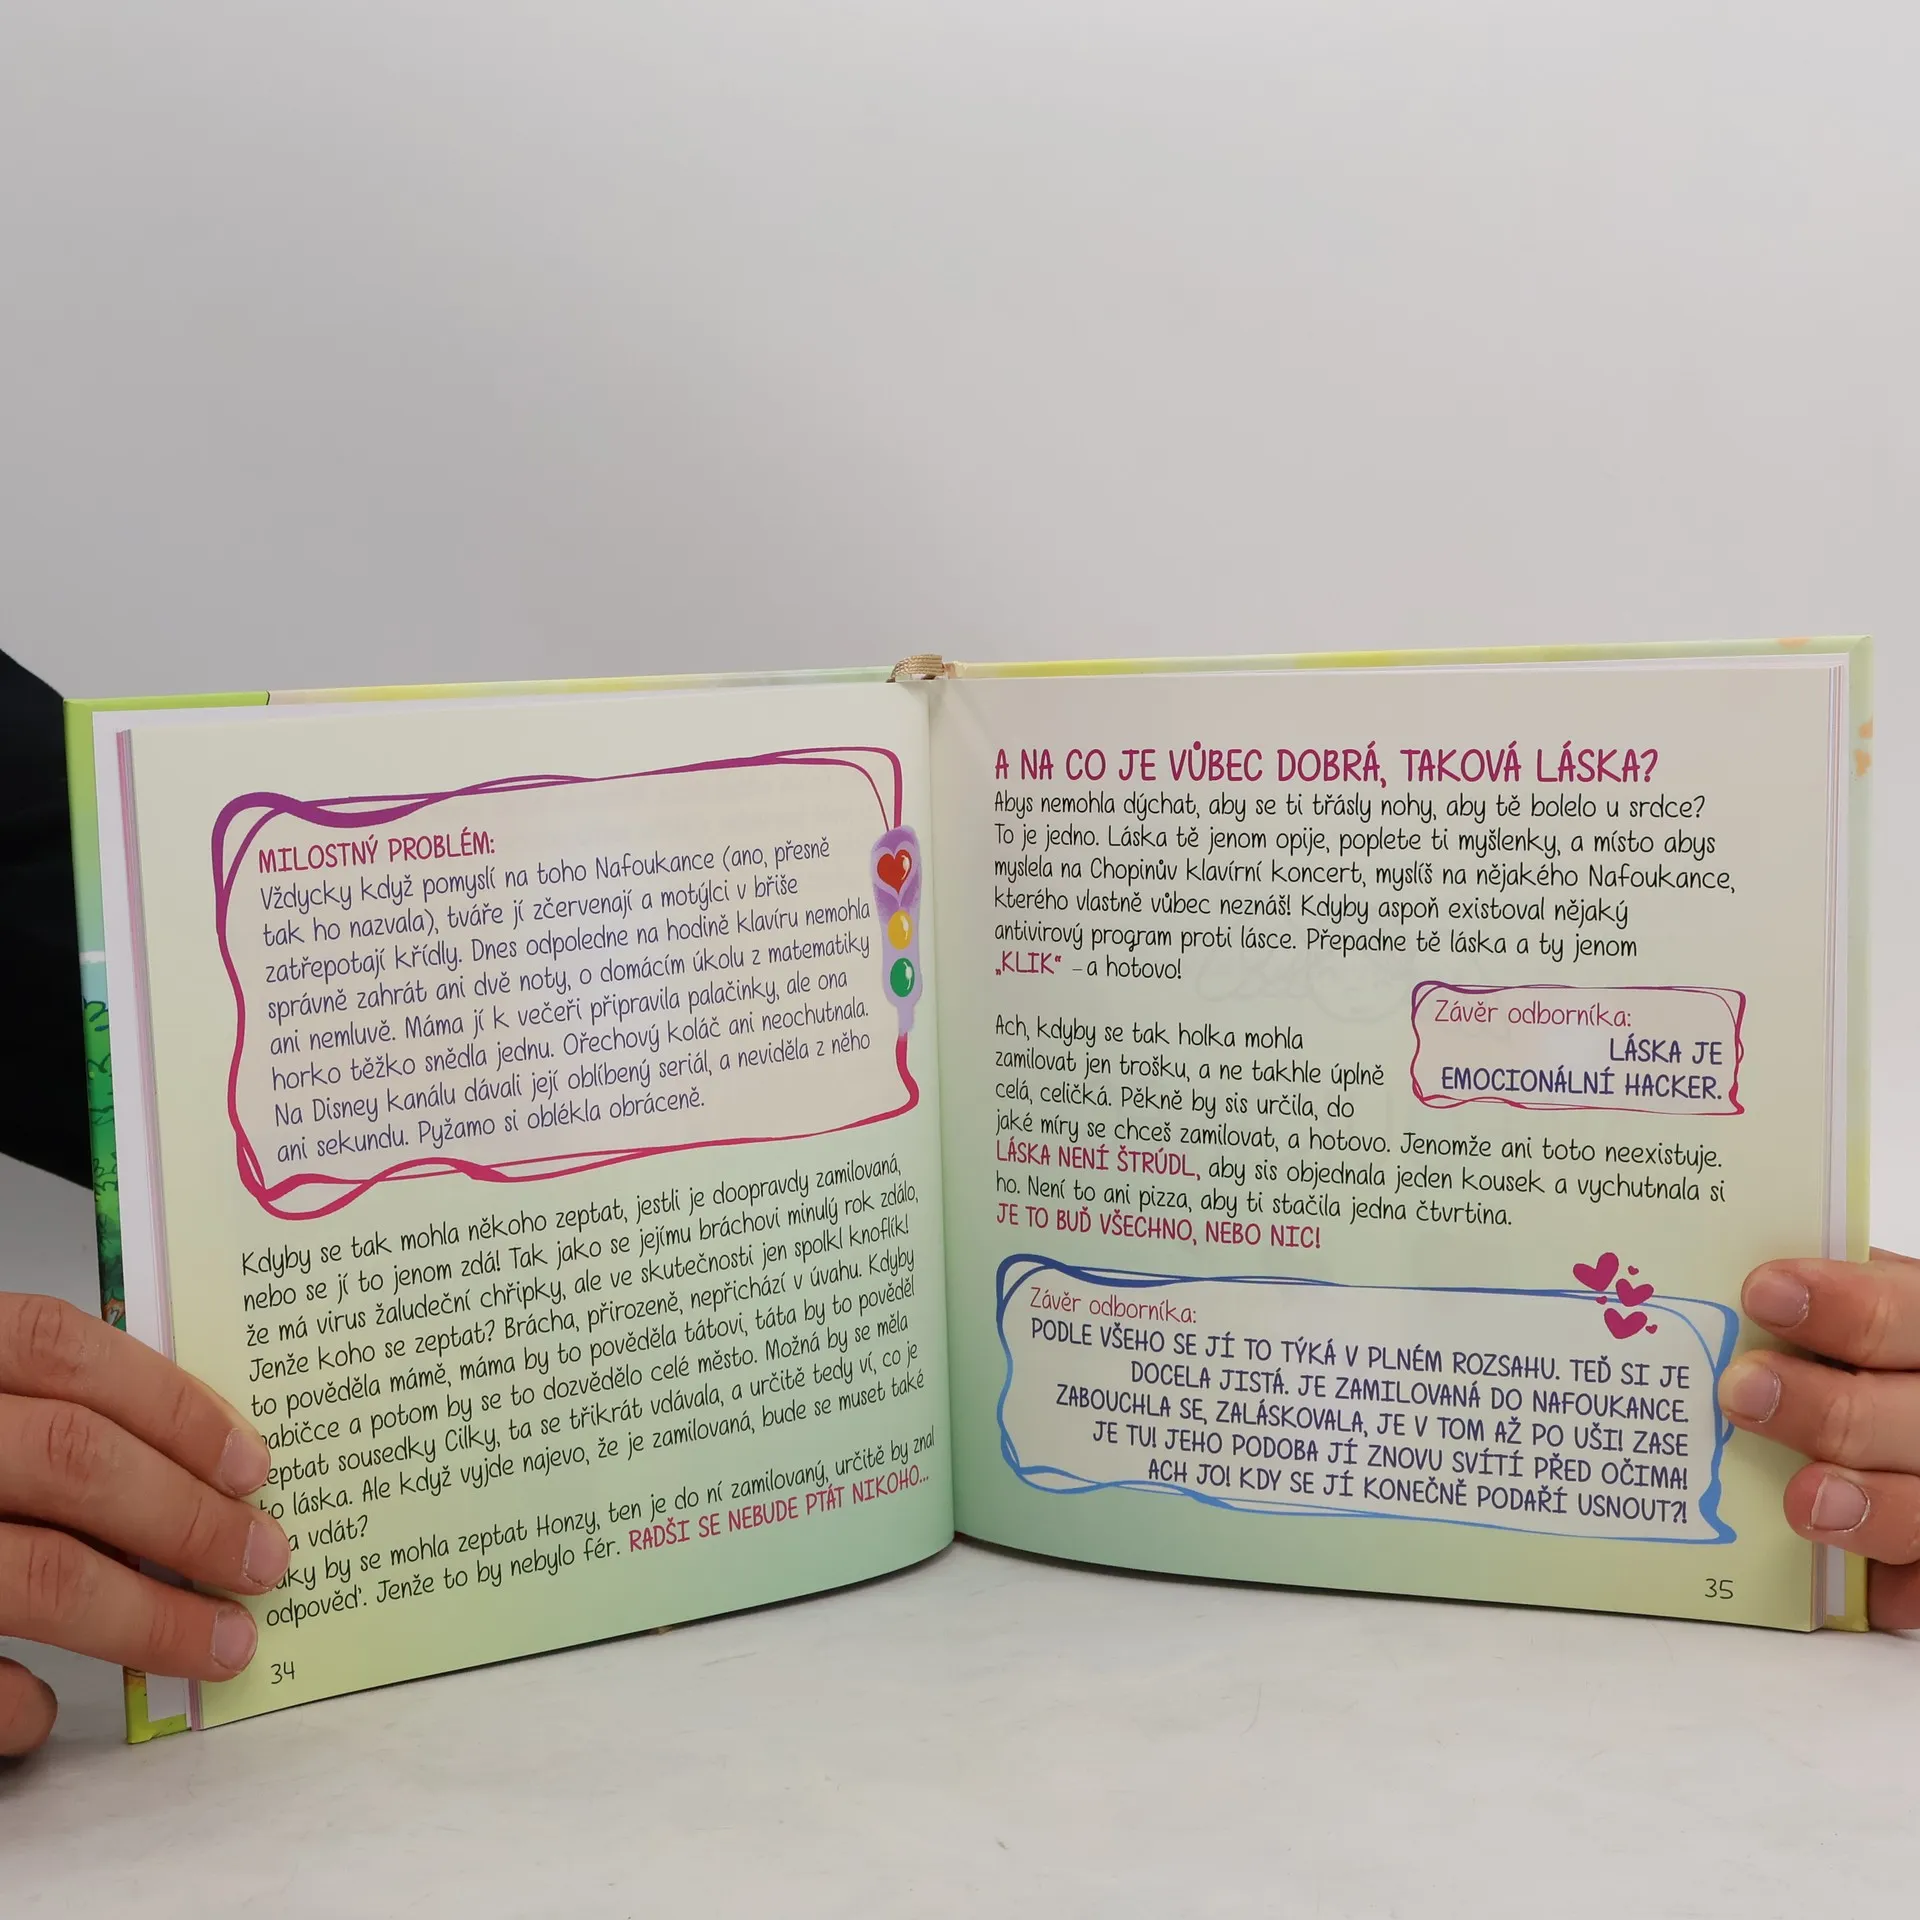 MILOSTNÝ PROBLÉM:
Vždycky když pomyslí na toho Nafoukance (ano, přesně
tak ho nazvala), tváře jí zčervenají a motýlci v břiše
zatřepotají křídly. Dnes odpoledne na hodině klavíru nemohla
správně zahrát ani dvě noty, o domácím úkolu z matematiky
ani nemluvě. Máma jí k večeři připravila palačinky, ale ona
horko těžko snědla jednu. Ořechový koláč ani neochutnala.
Na Disney kanálu dávali její oblíbený seriál, a neviděla z něho
ani sekundu. Pyžamo si oblékla obráceně.
Kdyby se tak mohla někoho zeptat, jestli je doopravdy zamilovaná,
nebo se jí to jenom zdá! Tak jako se jejímu bráchovi minulý rok zdálo,
že má virus žaludeční chřipky, ale ve skutečnosti jen spolkl knoflík!
Jenže koho se zeptat? Brácha, přirozeně, nepřichází v úvahu. Kdyby
to pověděla mámě, máma by to pověděla tátovi, táta by to pověděl
babičce a potom by se to dozvědělo celé město. Možná by se měla
zeptat sousedky Cilky, ta se třikrát vdávala, a určitě tedy ví, co je
to láska. Ale když vyjde najevo, že je zamilovaná, bude se muset také
a vdát?
aky by se mohla zeptat Honzy, ten je do ní zamilovaný, určitě by znal
odpověď. Jenže to by nebylo fér. RADŠI SE NEBUDE PTÁT NIKOHO...
34
A NA CO JE VŮBEC DOBRÁ, TAKOVÁ LÁSKA?
Abys nemohla dýchat, aby se ti třásly nohy, aby tě bolelo u srdce?
To je jedno. Láska tě jenom opije, poplete ti myšlenky, a místo abys
myslela na Chopinův klavírní koncert, myslíš na nějakého Nafoukance,
kterého vlastně vůbec neznáš! Kdyby aspoň existoval nějaký
antivirový program proti lásce. Přepadne tě láska a ty jenom
„KLIK“ – a hotovo!
Ach, kdyby se tak holka mohla
zamilovat jen trošku, a ne takhle úplně
celá, celičká. Pěkně by sis určila, do
jaké míry se chceš zamilovat, a hotovo. Jenomže ani toto neexistuje.
LÁSKA NENÍ ŠTRÚDL, aby sis objednala jeden kousek a vychutnala si
ho. Není to ani pizza, aby ti stačila jedna čtvrtina.
JE TO BUĎ VŠECHNO, NEBO NIC!
Závěr odborníka:
LÁSKA JE
EMOCIONÁLNÍ HACKER.
Závěr odborníka:
PODLE VŠEHO SE JÍ TO TÝKÁ V PLNÉM ROZSAHU. TEĎ SI JE
DOCELA JISTÁ. JE ZAMILOVANÁ DO NAFOUKANCE.
ZABOUCHLA SE, ZALÁSKOVALA, JE V TOM AŽ PO UŠI! ZASE
JE TU! JEHO PODOBA JÍ ZNOVU SVÍTÍ PŘED OČIMA!
ACH JO! KDY SE JÍ KONEČNĚ PODAŘÍ USNOUT?!
35